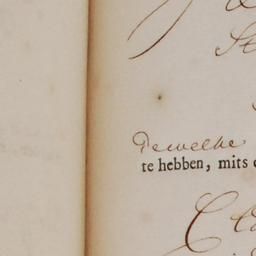 St
dewelke
te hebben, mits
Cl